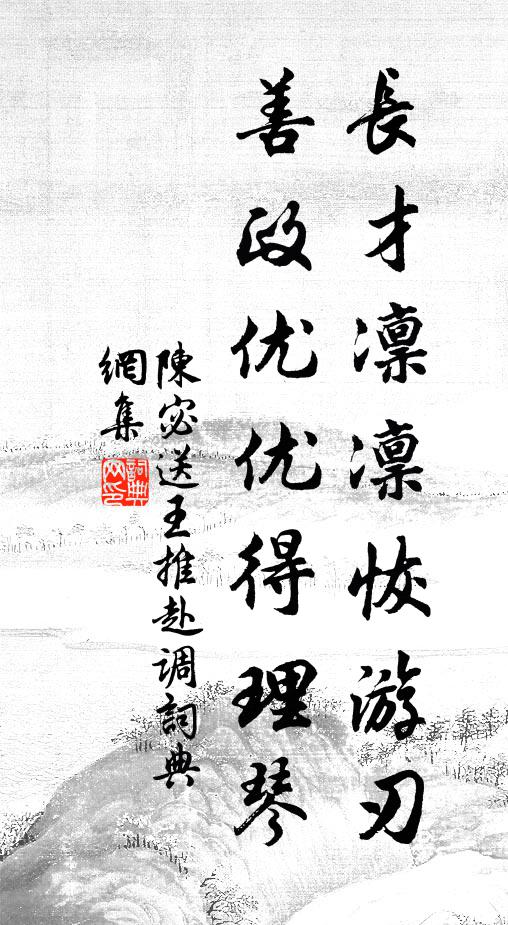 長才凛凛恢游刃
善政优优得理琴
陳宓送王推赴调詞典
網集
詞典
网印